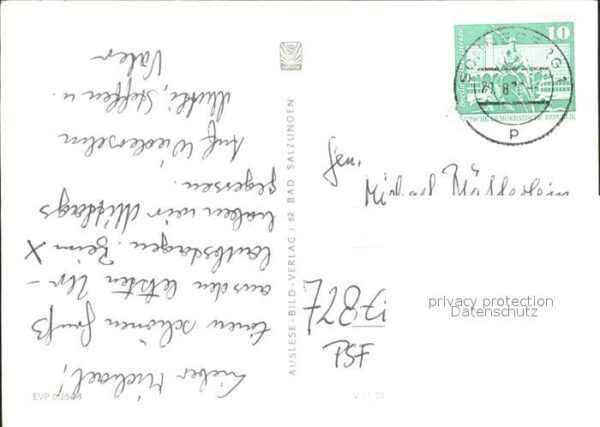 Lieber Michael!
Einen schönen Gruß
aus den letzten Ur-
laubstagen. Beim X
haben wir Mittags
gegessen.
Auf Wiedersehn
Mutti, Steffen u.
Vater
EVP 0,25
AUSLESE-BILD-VERLAG / 62 BAD SALZUNGEN
10
DEUTSCHE DEMOKRATISCHE REPUBLIK
P
Gen.
Michael
privacy protection
Datenschutz
PSF